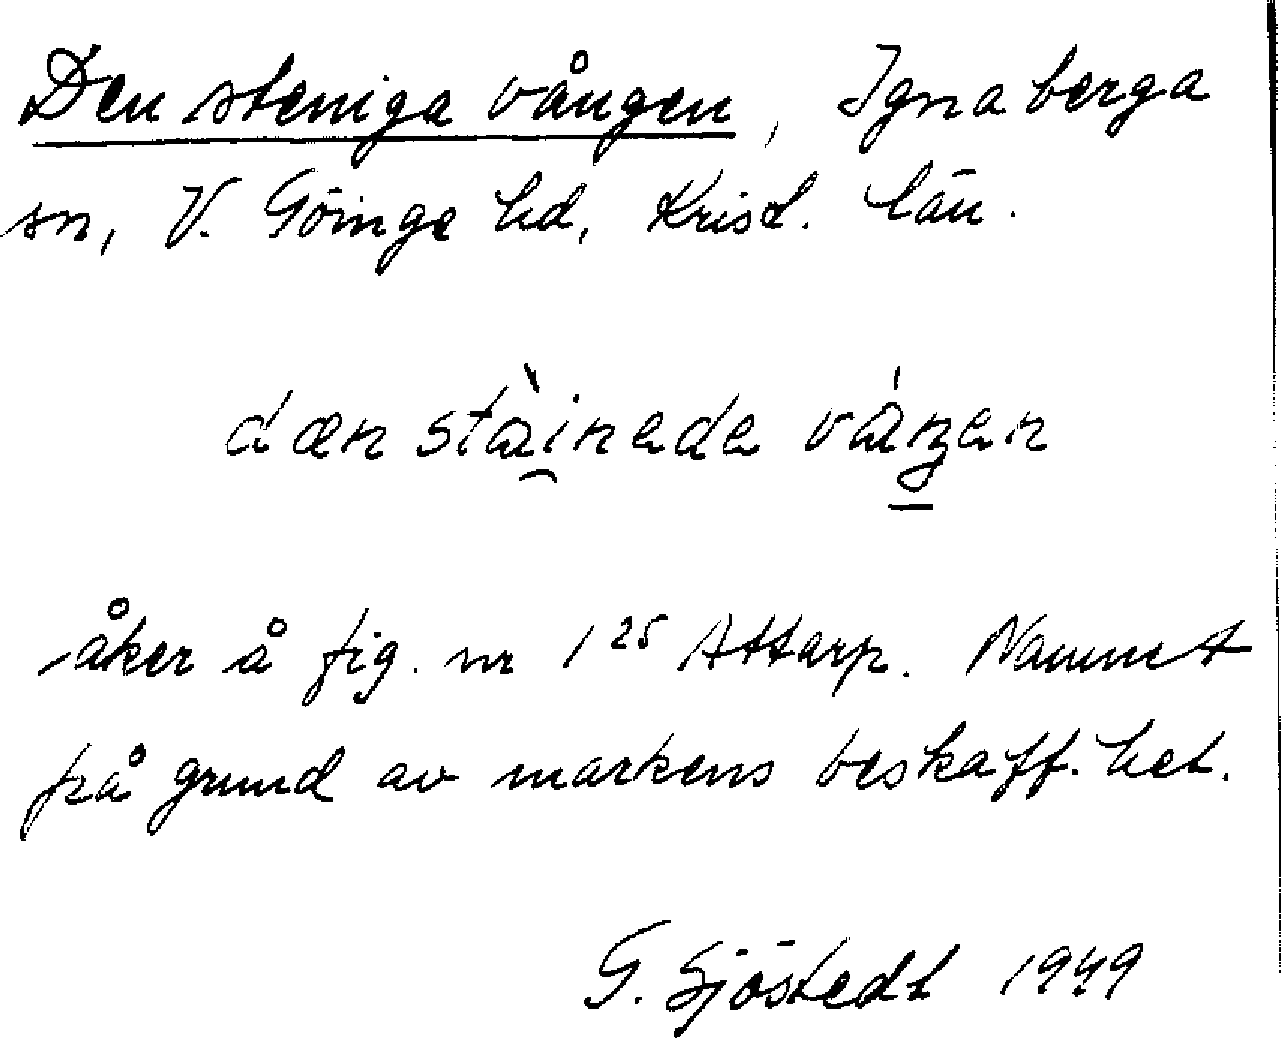 Den steniga vången, Ignaberga
sn, V. Göinge hd, Krist. län.
dæn stàinade váŋen
åker å fig. nr 1²⁵ Attarp. Namnet
på grund av markens beskaff.het.
G. Sjöstedt 1949